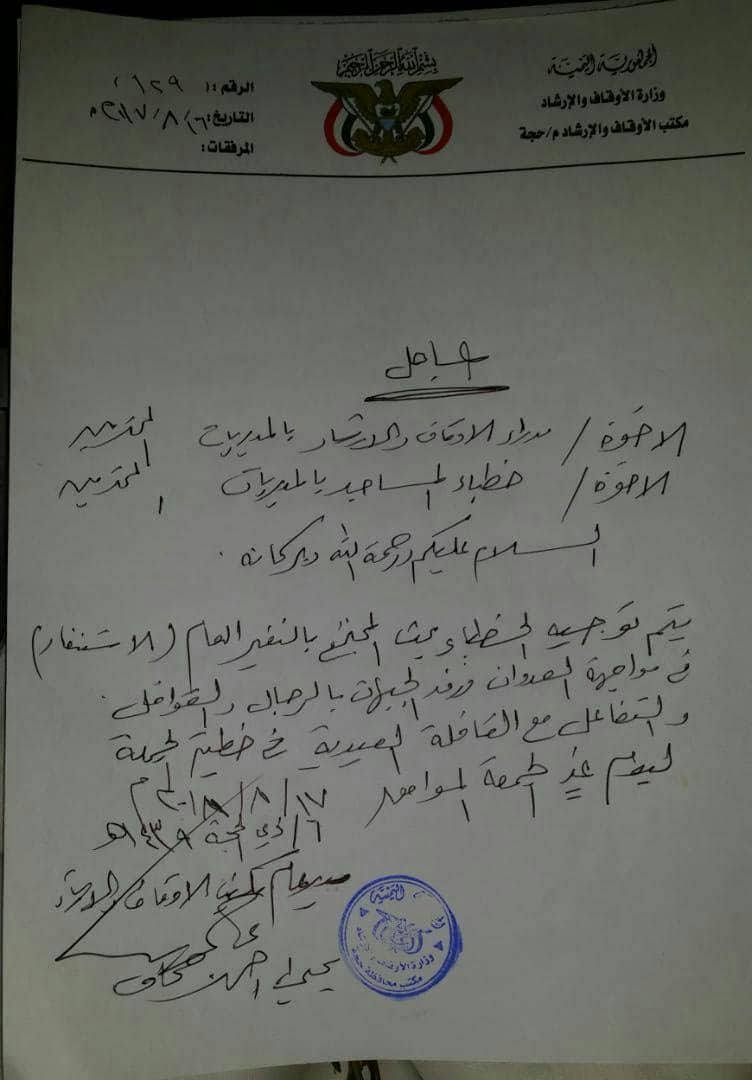 بسم الله الرحمن الرحيم
الجمهورية اليمنية
وزارة الأوقاف والإرشاد
مكتب الأوقاف والإرشاد م/حجة
الرقم: (١٢٩)
التاريخ:
المرفقات:
الاخوة / مدراء الاوقاف والارشاد بالمديريات المحترمين
الاخوة / خطباء المساجد بالمديريات المحترمين
السلام عليكم ورحمة الله وبركاته .
يتم توجيه الخطباء بحث المجتمع بالنفير العام (الاستنفار)
في مواجهة العدوان ورفد الجبهات بالرجال والقوافل .
والتفاعل مع القافلة العيدية في خطبة الجمعة
ليوم غدٍ الجمعة الموافق ١٧/٨/٢٠١٨م
٦/ذي الحجة ١٤٣٩هـ
مدير عام مكتب الاوقاف والارشاد
يحيى احمد
وزارة الأوقاف والإرشاد
مكتب محافظة حجة